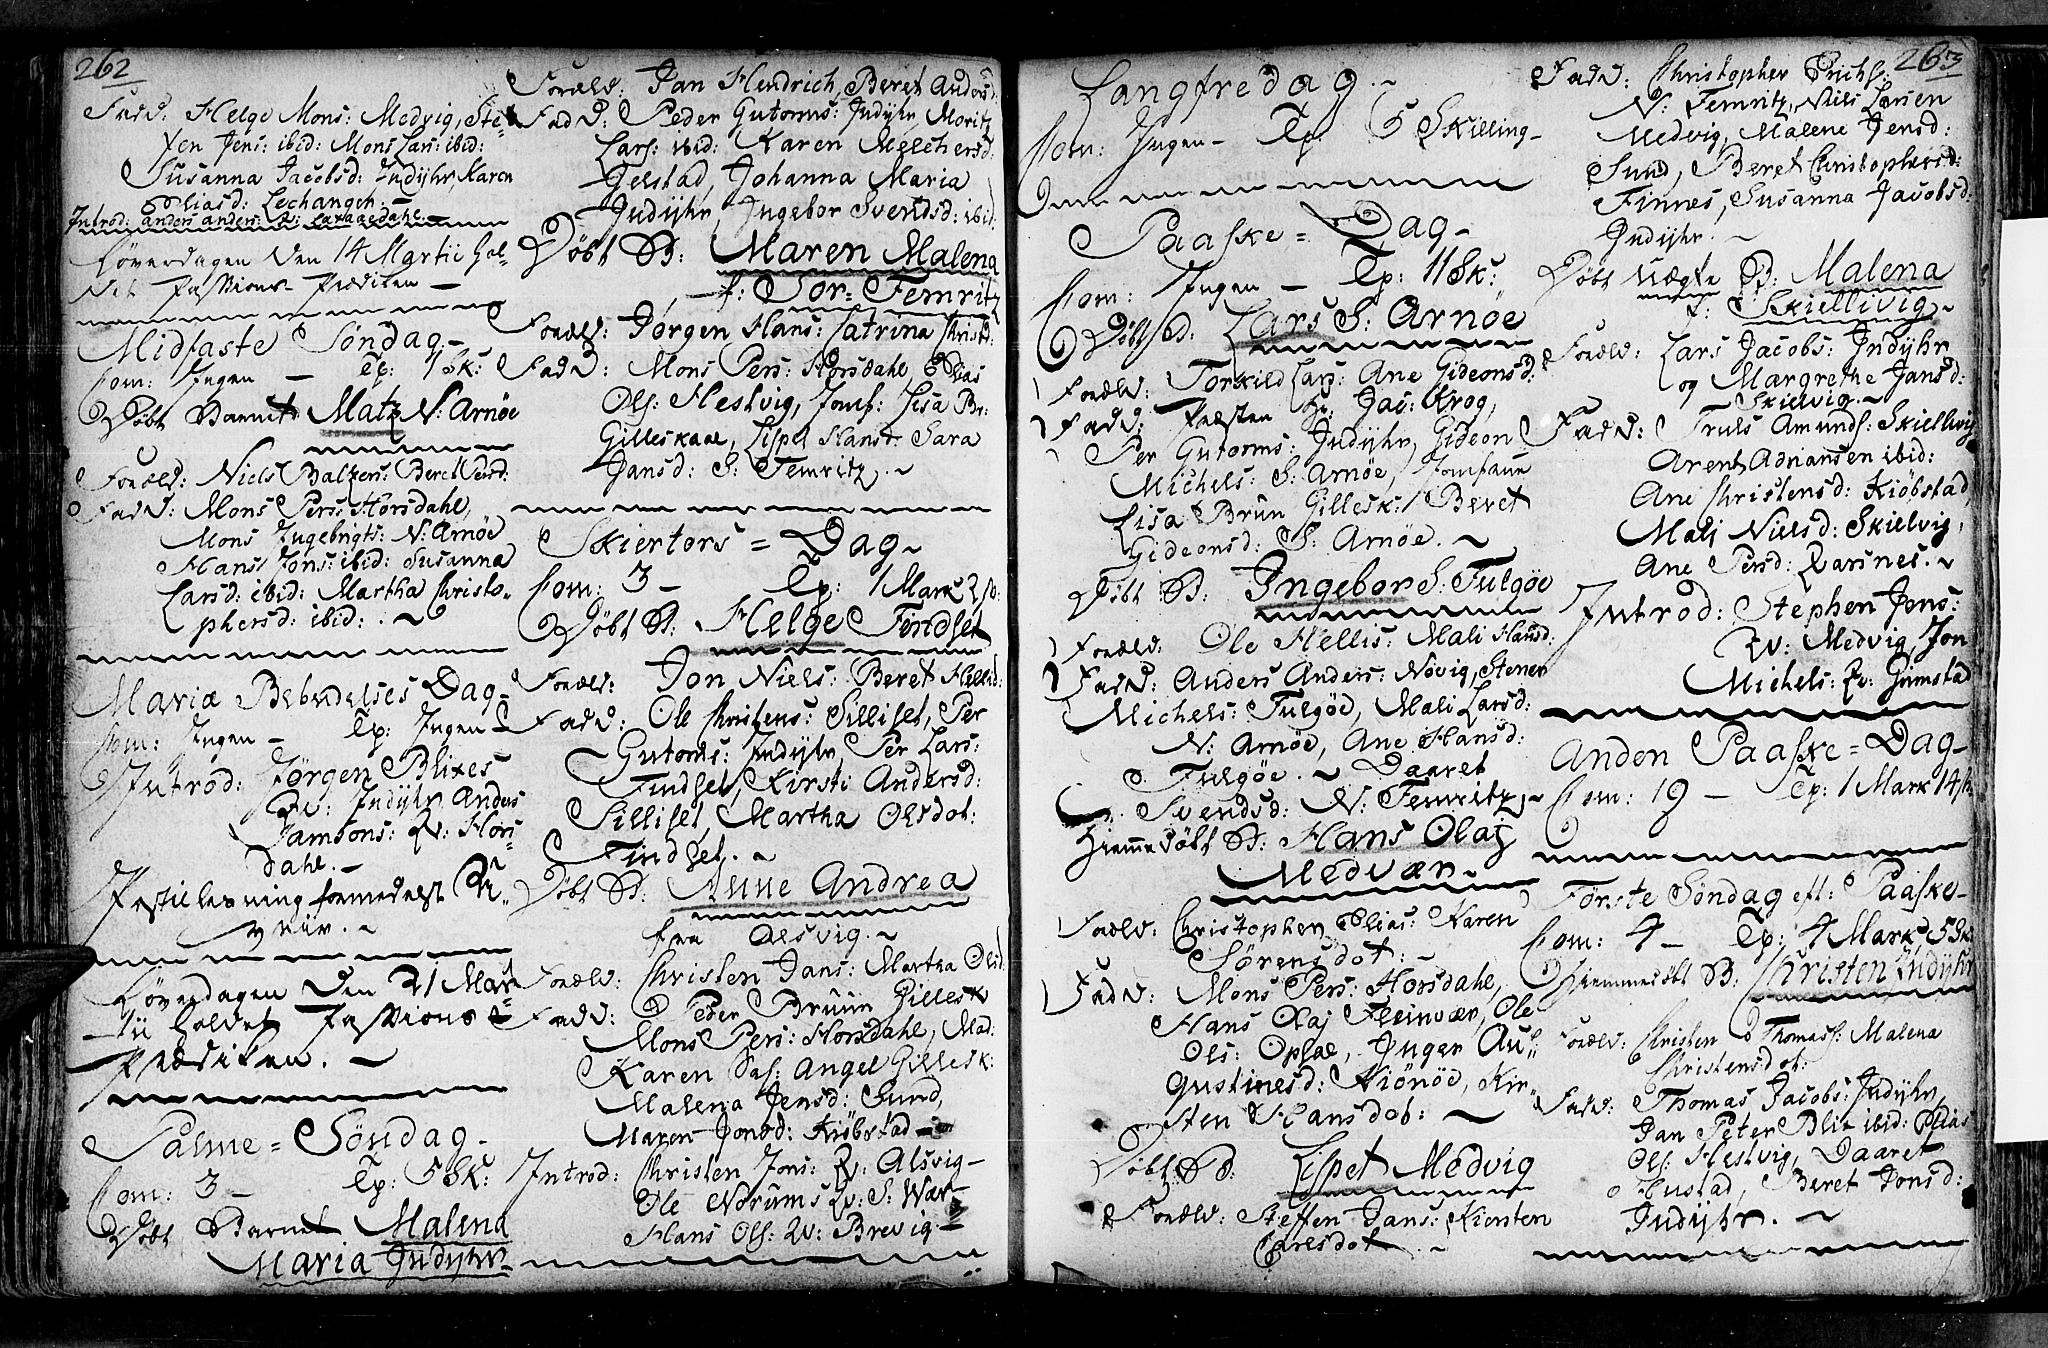 262
Fadd: Helge Mons: Medvig, Ste-
fen Jens: ibid: Mons Lars: ibid:
Susanna Jacobsd: Indÿhr, Karen
Eliasd: Lechangen. -
Introd: anders anders: Qv:
Löverdagen den 14 Martii hol-
det Passions-Prædiken -
Midfaste Söndag. -
Com: Ingen - Tp: 1 Sk:
Döbt Barnet Matz N: Arnöe
Foræld: Niels Baltzers: Beret Persd:
Fadd: Mons Pers: Horsdahl,
Mons Ingebrigts: N: Arnöe
Hans Jons: ibid: Susanna
Larsd: ibid: Martha Christo-
phersd: ibid: . ~
Mariæ Bebudelses Dag -
Com: Ingen - Tp: Ingen -
Introd: Jörgen Blixes
Qv: Indÿhr, Anders
Jamsons: Qv: Hors-
dahl. -
Löverdagen den 21 Mar-
tii holdet Passions-
Prædiken. ~
Palme = Söndag -
Com: 3 - Tp: 5 Sk:
Döbt Barnet Malena
Maria Indÿhr
Foræld: Jan Hendrich, Beret Andersd:
Fadd: Peder Gutorms: Indÿhr, Moritz
Lars: ibid: Karen Melchersd:
Gelstad, Johanna Maria
Indÿhr, Ingebor Svendsd: ibid:
Döbt B: Maren Malena
f: Sör = Femritz
Foræld: Jörgen Hans: Catrina Christd:
Fadd: Mons Pers: Horsdahl, Elias
Ols: Hestvig, Jomf: Lisa Br:
Gilleskaal, Lispet Hansd: Sara
Jansd: S: Femritz. ~
Skiertors = Dag ~
Com: 3 - Tp: 1 Mark 2 ſk:
Döbt B: Helge Fondset
Foræld: Jon Niels: Beret Hellisd:
Fadd: Ole Christens: Silliset, Per
Gutorms: Indÿhr, Per Lars:
Findset, Kirsti Andersd:
Silliset, Martha Olsdot:
Findset. ~
Döbt B: Anne Andrea
fra Alsvig. ~
Foræld: Christen Jans: Martha Olsd:
Fadd: Peder Bruun Gillesk:
Mons Pers: Horsdahl, Mad:
Karen Sal: Angel Gillesk:
Malena Jensd: Sund,
Maren Jonsd: Kiöbstad -
Introd: Christen Jons: Qv: Alsvig -
Ole Norums Qv: S: Wær -
Hans Ols: Qv: Brevig -
263
Langfredag. ~
Com: Ingen - Tp: 5 Skilling -
Paaske = Dag -
Com: Ingen - Tp: 11 Sk:
Döbt B: Lars S: Arnöe
Foræld: Torkild Lars: Ane Gideonsd:
Fadd: Præsten Hr: Jac: Krog,
Per Gutorms: Indÿhr, Gideon
Michels: S: Arnöe, Jomfrune
Lisa Brun Gillesk: Beret
Gideonsd: S: Arnöe. ~
Döbt B: Ingebor S: Fulgöe
Foræld: Ole Hellis: Mali Hansd:
Fadd: Anders Anders: Növig, Stener
Michels: Fulgöe, Mali Larsd:
N: Arnöe, Ane Hansd:
Fulgöe. ~ Daaret
Svendsd: N: Femritz, -
Hiemmedöbt B: Hans Olaj
Medvær -
Foræld: Christopher Elias: Karen
Sörensdot: ~
Fadd: Mons Pers: Horsdahl,
Hans Olaj Fleinvær, Ole
Ols: Opsal, Inger Au-
gustinesd: Kiönöe, Kir-
sten Hansdot: ~
Döbt B: Lispet Medvig
Foræld: Steffen Jans: Kiersten
Carlsdot. ~
Fadd: Christopher Erichs:
N: Femritz, Niels Larsen
Medvig, Malene Jensd:
Sund, Beret Christophersd:
Finnes, Susanna Jacobsd:
Indÿhr. ~
Döbt uægte B: Malena
f: Skiellivig -
Foræld: Lars Jacobs: Indÿhr
og Margrethe Jansd:
Skielvig. ~
Fadd: Truls Amunds: Skiellvig
Arent Adriansen ibid:
Ane Christensd: Kiöbstad,
Mali Nielsd: Skiellvig,
Ane Persd: Qvarsnes. ~
Introd: Stephen Jens:
Qv: Medvig, Jon
Michels: Qv: Grimstad
Anden Paaske = Dag -
Com: 19 - Tp: 1 Mark 14 ſk:
Förste Söndag eft: Paaske -
Com: 4 - Tp: 4 Mark 5 Sk:
Hiemmedöbt B: Christen Indÿhr
Foræld: Christen Thomass: Malena
Christensdot:
Fadd: Thomas Jacobs: Indÿhr,
Jan Peter Blix ibid: Elias
Ols: Hestvig, Daaret
Hustad, Beret Jonsd:
Indÿhr. ~